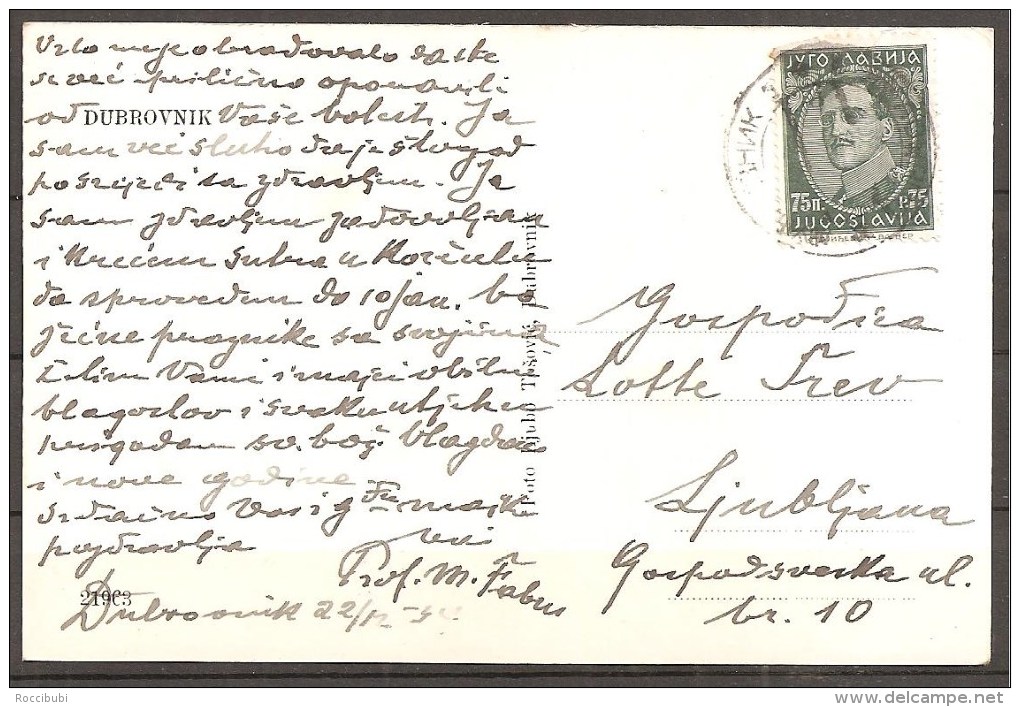 Vrlo me je obradovalo da ste
se već prilično oporavili
od Vaše bolesti. Ja
DUBROVNIK
sam već slutio da je štogod
posrijedi sa zdravljem. Ja
sam zdravljem zadovoljan
i krećem sutra u Korčulu
da sprovedem do 10 jan. bo
žićne praznike sa svojima
Želim Vami i majci obilni
blagoslov i svaku utjehu
prigodom sv. bož. blagdana
i nove godine
Srdačno Vas i gđu majku
pozdravlja Vaš
Prof. M. Fabris
21903
Dubrovnik 22/12
Foto Ljubo Tošović, Dubrovnik
ЈУГОСЛАВИЈА
75п Р.75
JUGOSLAVIJA
Gospođica
Lotte Trev
Ljubljana
Gosposvecka ul.
br. 10
Roccibubi
www.delcampe.net